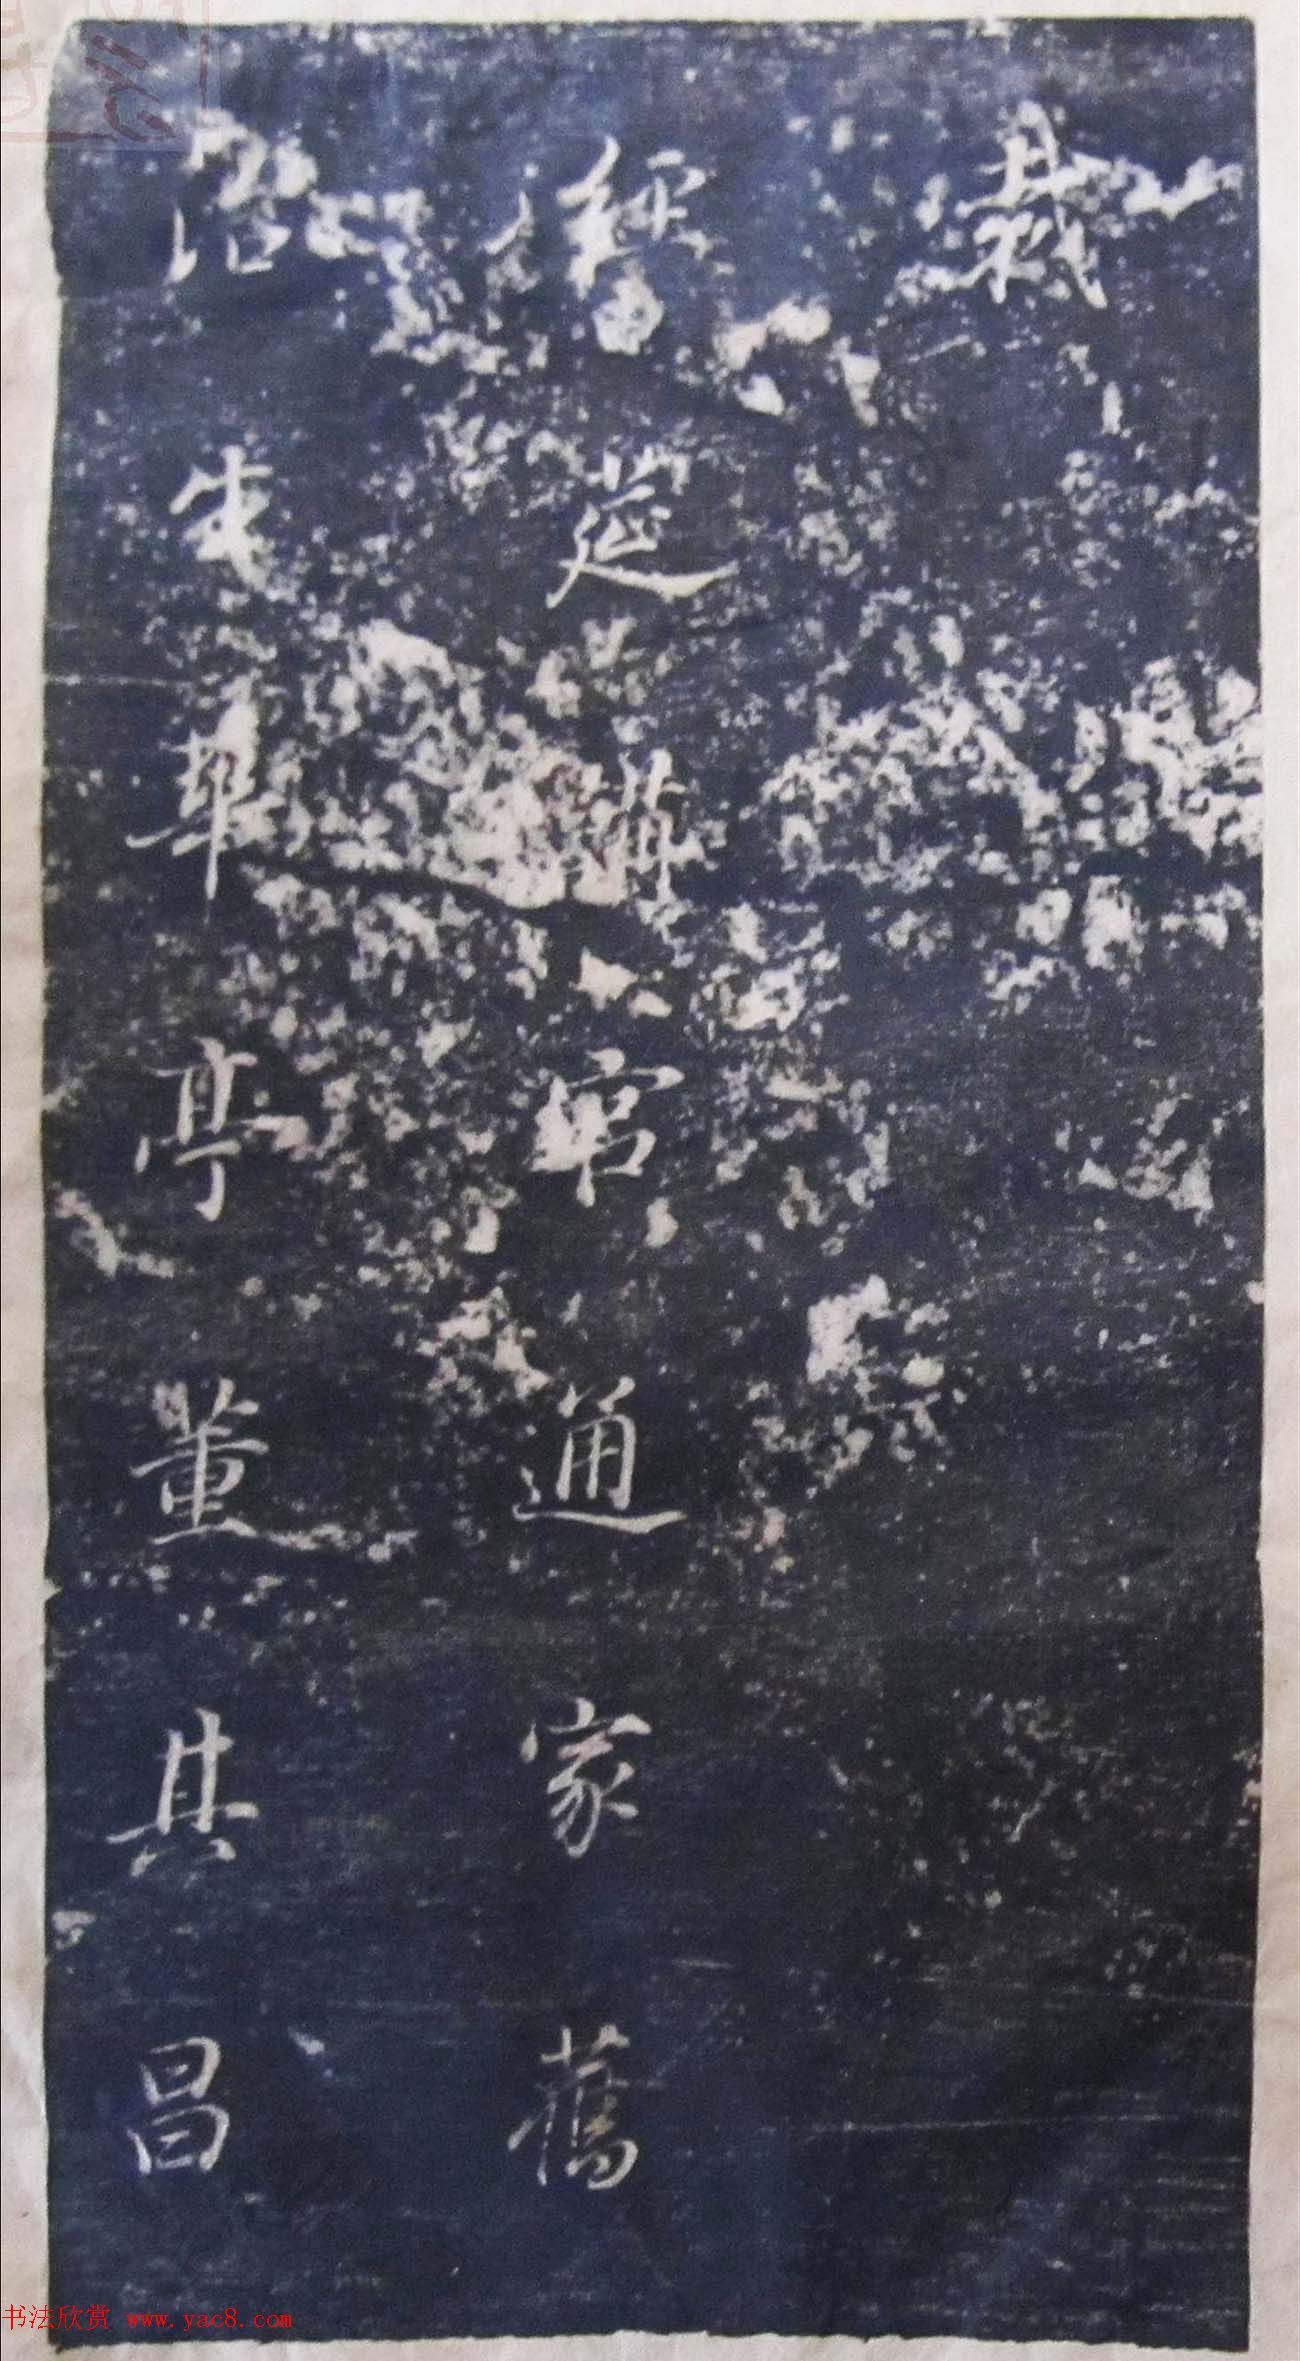 哉
經筵講官通家舊
治生華亭董其昌
书法欣赏 www.yac8.com